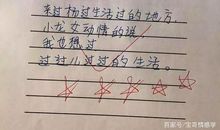 来过杨过生活过的地方
小龙女动情的说
我也想过
过过儿过过的生活。
百家号/宝哥情感学